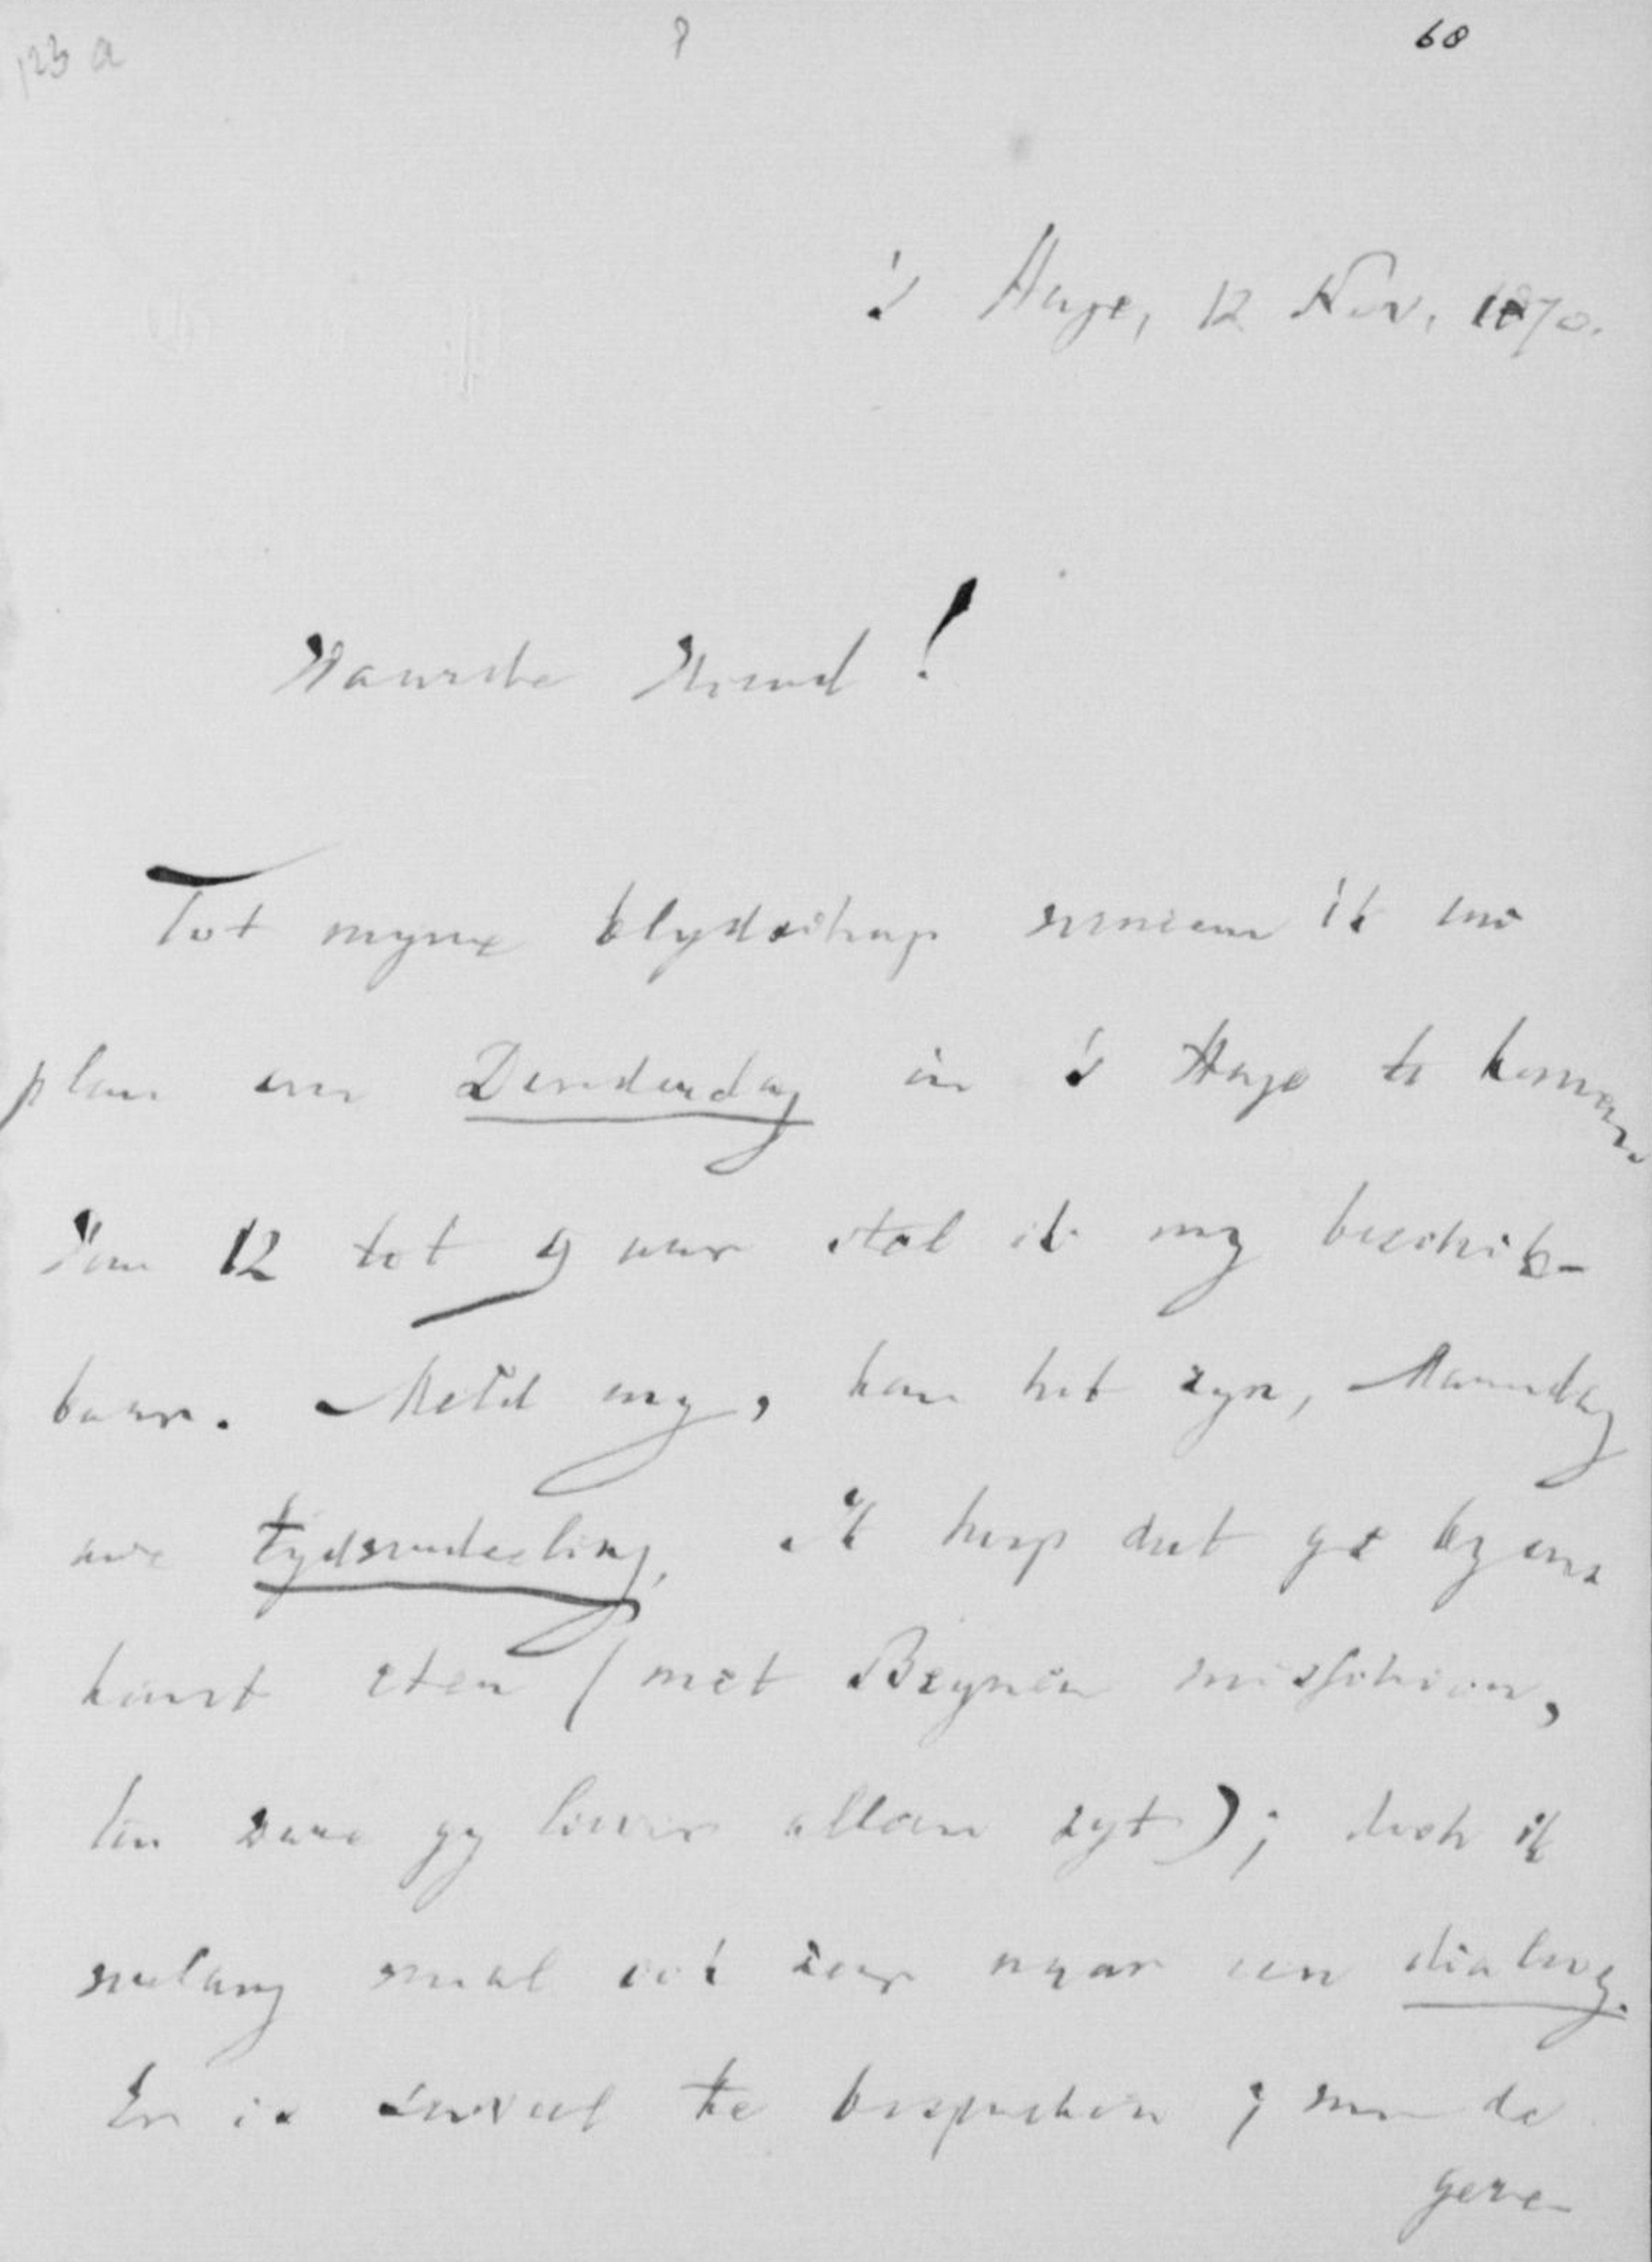 123 a
?
68
's Hage, 12 Nov. 1870.
Waarde Vriend!
Tot myne blydschap verneem ik uw
plan om Donderdag in 's Hage te komen.
Van 12 tot 9 uur stel ik my beschik-
baar. Meld my, kan het zyn, Maandag
uwe tydsverdeeling. Ik hoop dat ge by ons
komt eten (met Beynen misschien,
ten zy gy liever alleen zyt); doch ik
verlang vooral ook zeer naar een dialoog.
Er is zooveel te bespreken; van de
geve-